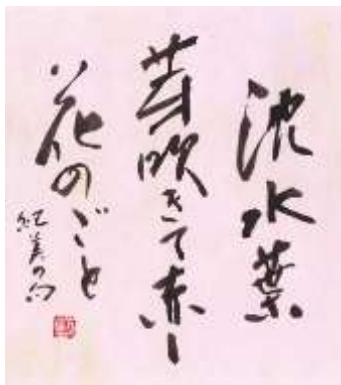 沈水葉
芽吹きて赤し
花のごと
紀美の句